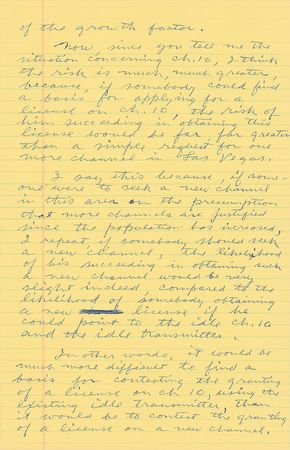 of the growth factor.
Now, since you tell me the
situation concerning ch. 10, I think
the risk is much, much greater,
because, if somebody could find
a basis for applying for a
license on ch. 10, the risk of
him succeeding in obtaining this
license would be far, far greater
than a simple request for one
more channel in Las Vegas.
I say this because, if some-
one were to seek a new channel
in this area on the presumption
that more channels are justified
since the population has increased,
I repeat if somebody should seek
a new channel, the likelihood
of his succeeding in obtaining such
a new channel would be very
slight indeed compared to the
likelihood of somebody obtaining
a new license if he
could point to the idle ch. 10
and the idle transmitter.
In other words, it would be
much more difficult to find a
basis for contesting the granting
of a license on ch 10, using the
existing idle transmitter, than
it would be to contest the granting
of a license on a new channel.